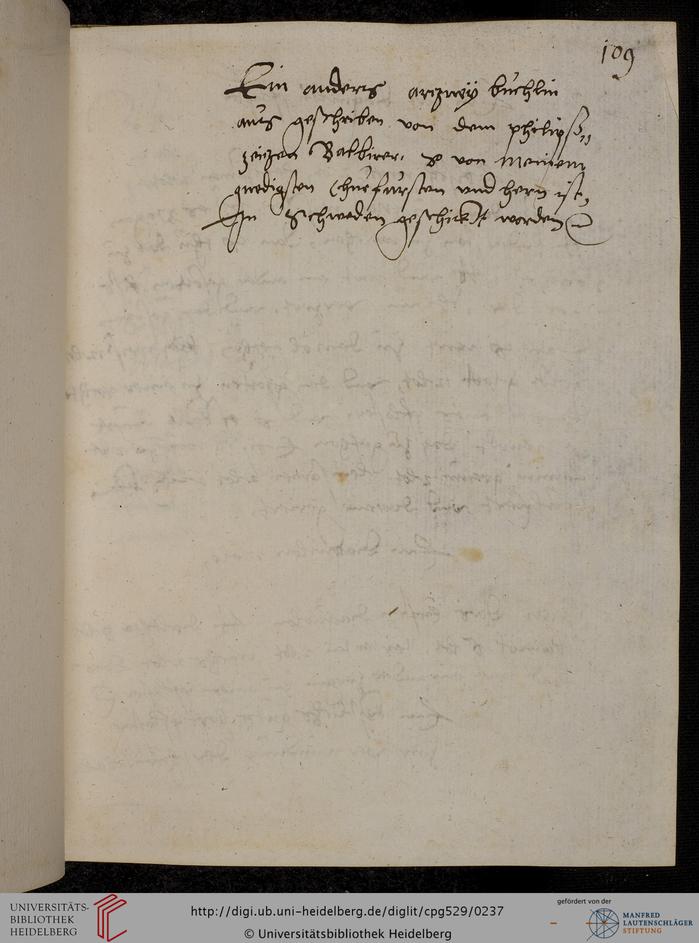 109
Ein anders artzney büchlin
aus geschriben von dem philips
Balbirer, so von Meinem
gnedigsten Churfürsten vnd hern ist,
In Schweden geschickt worden
UNIVERSITÄTS-
BIBLIOTHEK
HEIDELBERG
http://digi.ub.uni-heidelberg.de/diglit/cpg529/0237
© Universitätsbibliothek Heidelberg
gefördert von der
MANFRED
LAUTENSCHLÄGER
STIFTUNG